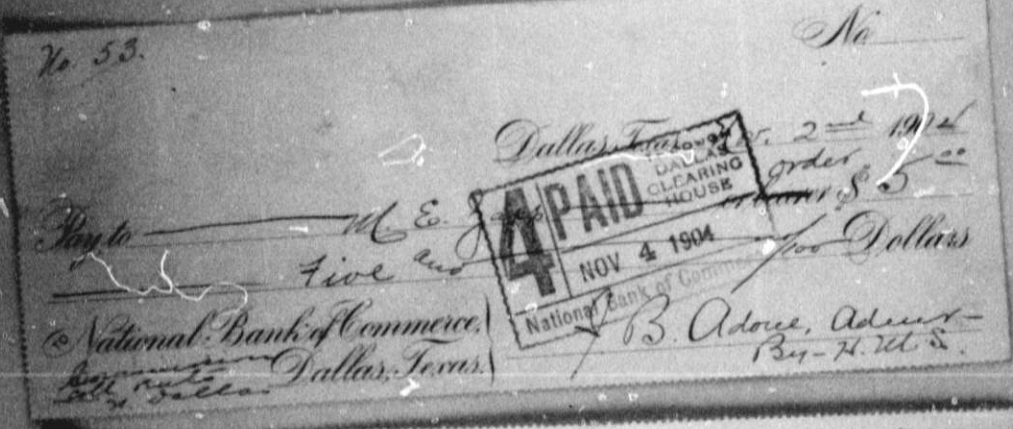 No. 53.
No
Dallas, Texas, 2nd 1904
order
Pay to M. E. or bearer $ 5 00
Five and no/100 Dollars
4 PAID
THROUGH
DALLAS
CLEARING
HOUSE
NOV 4 1904
National Bank of Commerce
National Bank of Commerce,
Dallas, Texas.
Dallas
J B. Adoue, Admr-
By - H. M. S.